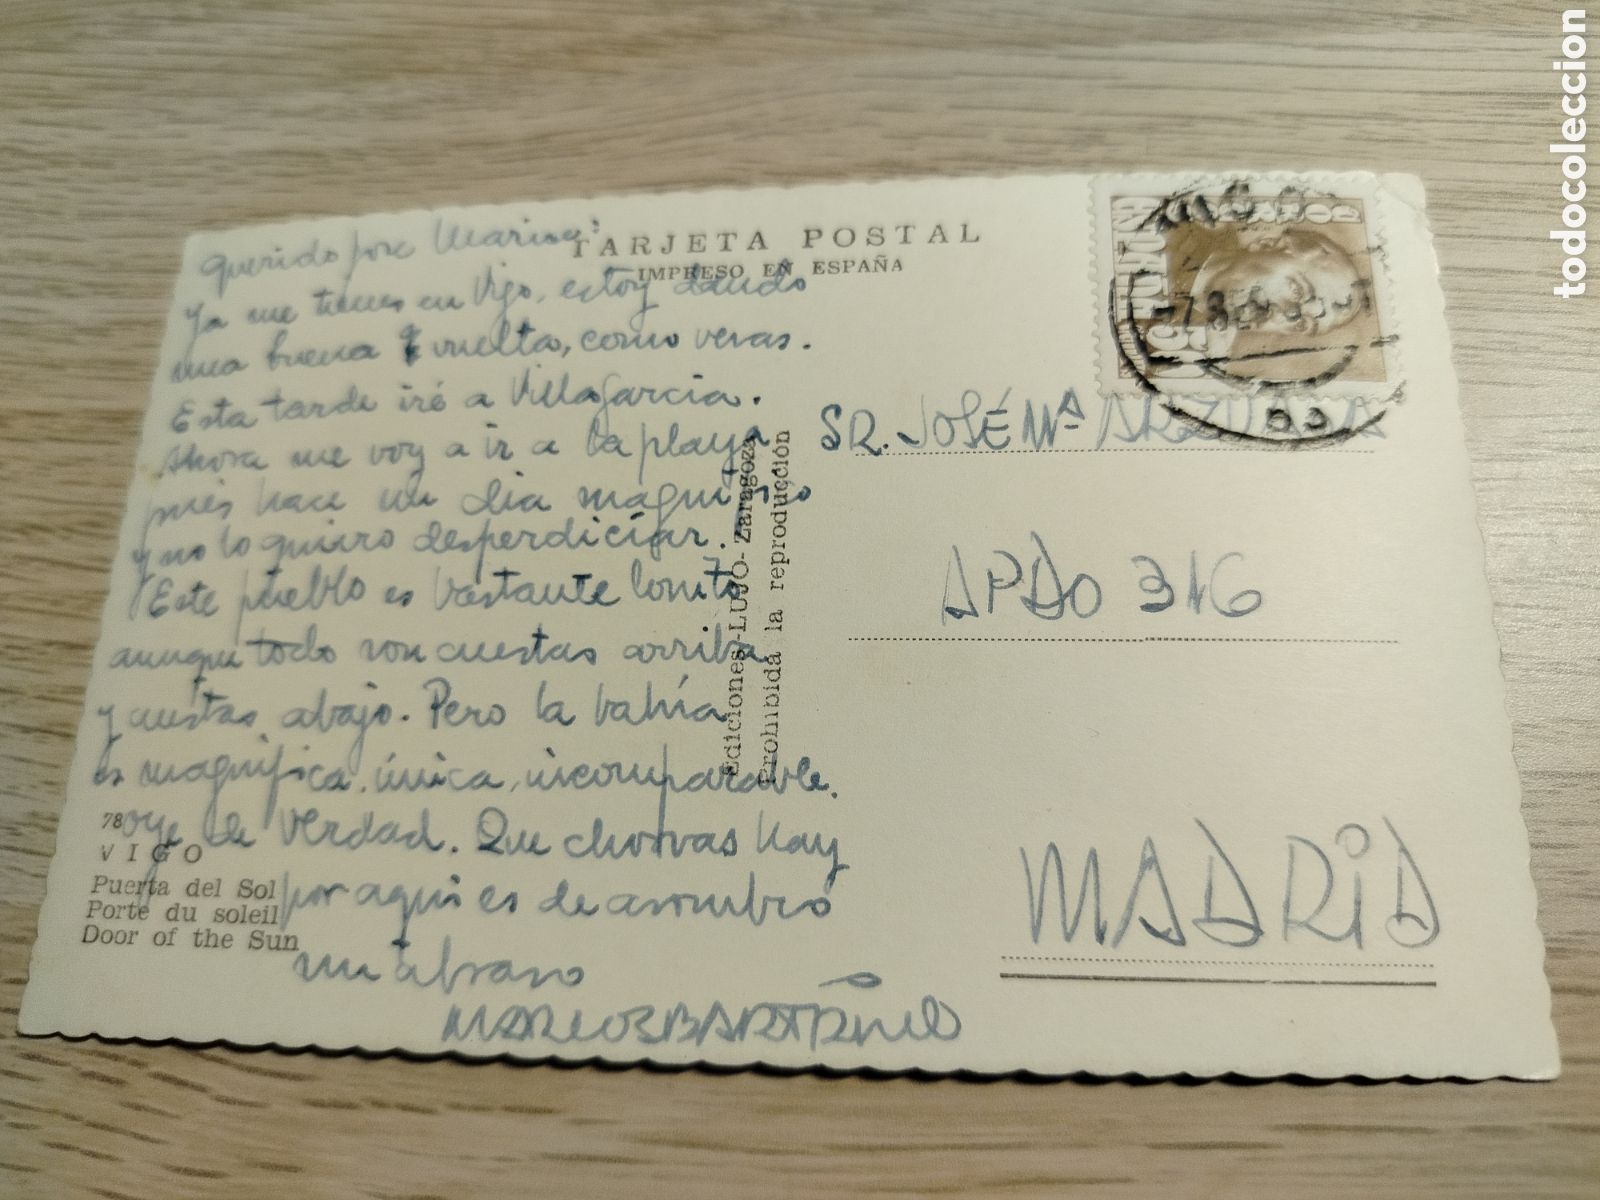 TARJETA POSTAL
IMPRESO EN ESPAÑA
querido jose Marina:
Ya me tienes en Vigo, estoy dando
una buena vuelta, como veras.
Esta tarde iré a Villagarcia.
Ahora me voy a ir a la playa
pues hace un dia magnifico
y no lo quiero desperdiciar.
Este pueblo es bastante bonito
aunque todo son cuestas arriba
y cuestas abajo. Pero la bahía
es magnifica, única, incomparable.
oye de verdad. Que chorvas hay
por aqui es de asombro
un abrazo
78
VIGO
Puerta del Sol
Porte du soleil
Door of the Sun
Ediciones-LUJO-Zaragoza
Prohibida la reproducción
SR. JOSÉ Mª
APDO 316
MADRID
todocoleccion